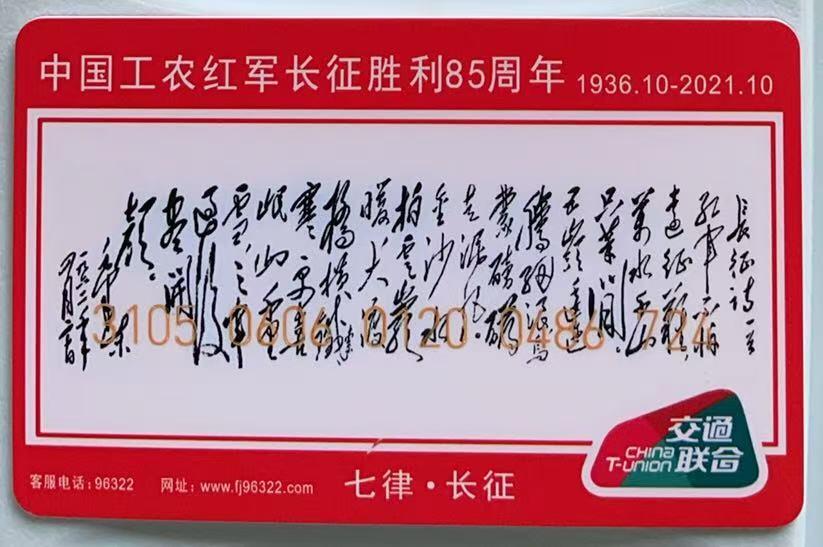 中国工农红军长征胜利85周年 1936.10-2021.10
長征詩一首
紅軍不怕
遠征難,
萬水千山
只等閒。
五嶺逶迤
騰細浪,烏
蒙磅礴
走泥丸。
金沙水
拍雲崖
暖,大渡
橋橫鐵索
寒。更喜
岷山千里
雪,三軍
過後
盡開
顏。
毛澤東
3105 0606 0120 0486 724
交通
联合
CHINA
T-UNION
客服电话:96322 网址:www.fj96322.com
七律·长征